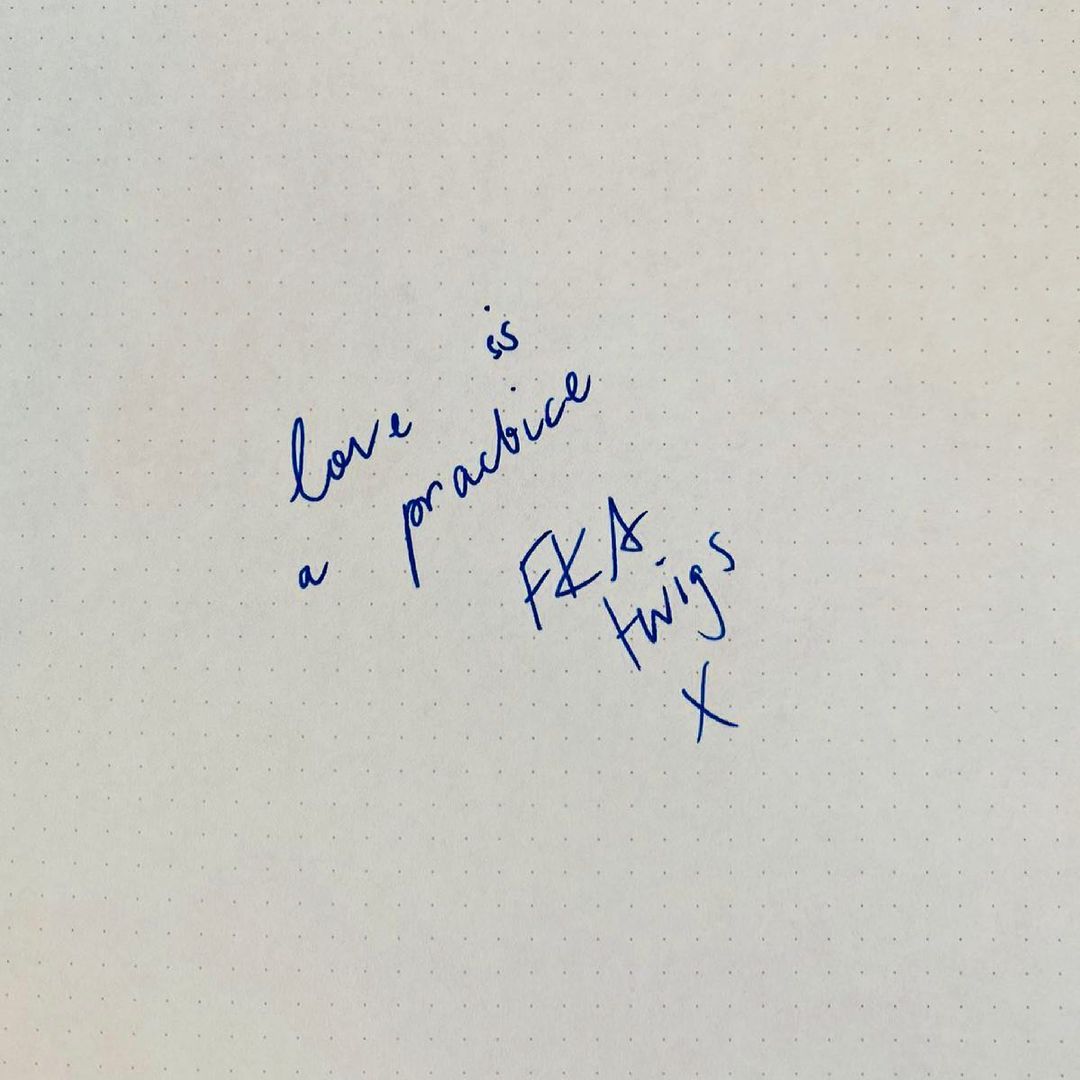 love is
a practice
FKA
twigs
x